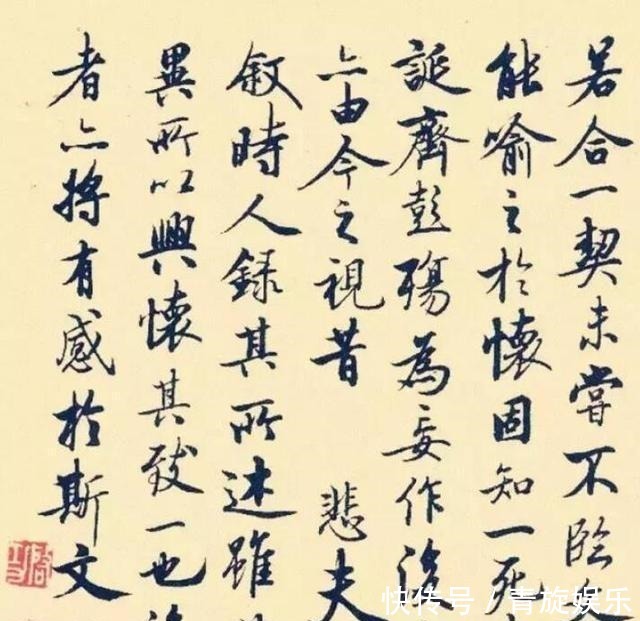 若合一契未嘗不臨
能喻之於懷固知一死
誕齊彭殤為妄作後
亦由今之視昔 悲夫
叙時人錄其所述雖
異所以興懷其致一也
者亦將有感於斯文
快传号 / 青旋娱乐